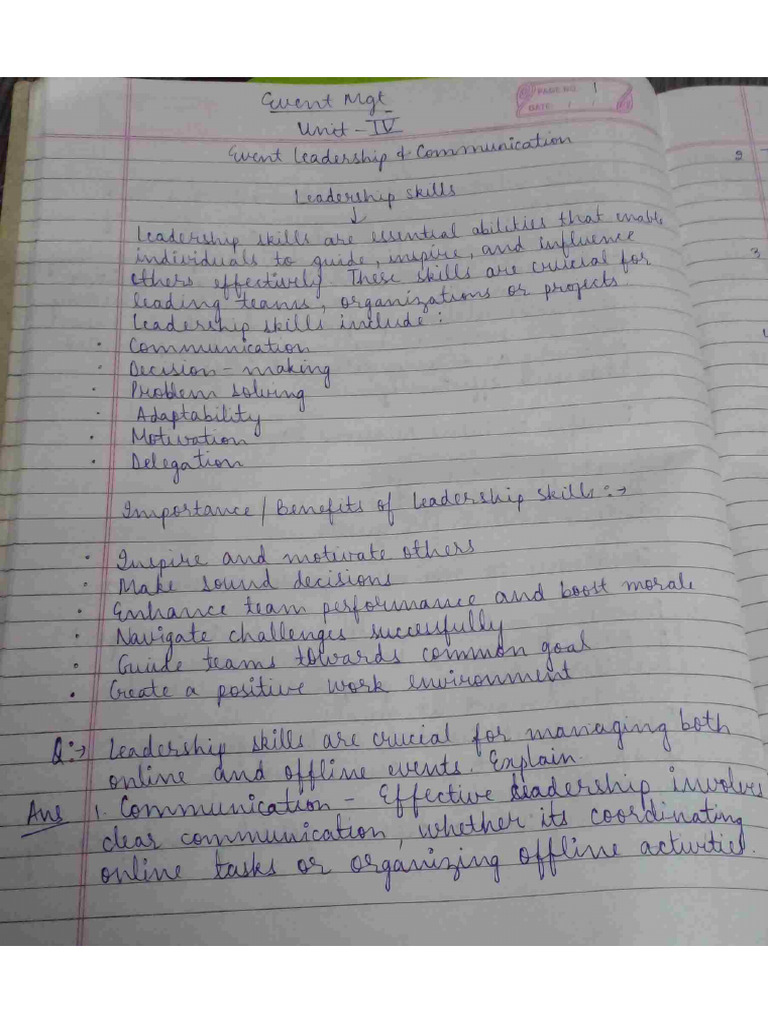 PAGE NO. 1
DATE: / /
Event Mgt
Unit - IV
Event Leadership & Communication
Leadership skills
↓
Leadership skills are essential abilities that enable
individuals to guide, inspire, and influence
others effectively. These skills are crucial for
leading teams, organizations or projects
Leadership skills include :
• Communication
• Decision - making
• Problem solving
• Adaptability
• Motivation
• Delegation
Importance / Benefits of leadership skills :→
• Inspire and motivate others
• Make sound decisions
• Enhance team performance and boost morale
• Navigate challenges successfully
• Guide teams towards common goal
• Create a positive work environment
Q:→ Leadership skills are crucial for managing both
online and offline events. Explain.
Ans 1. Communication - Effective leadership involves
clear communication, whether its coordinating
online tasks or organizing offline activities.
2
3